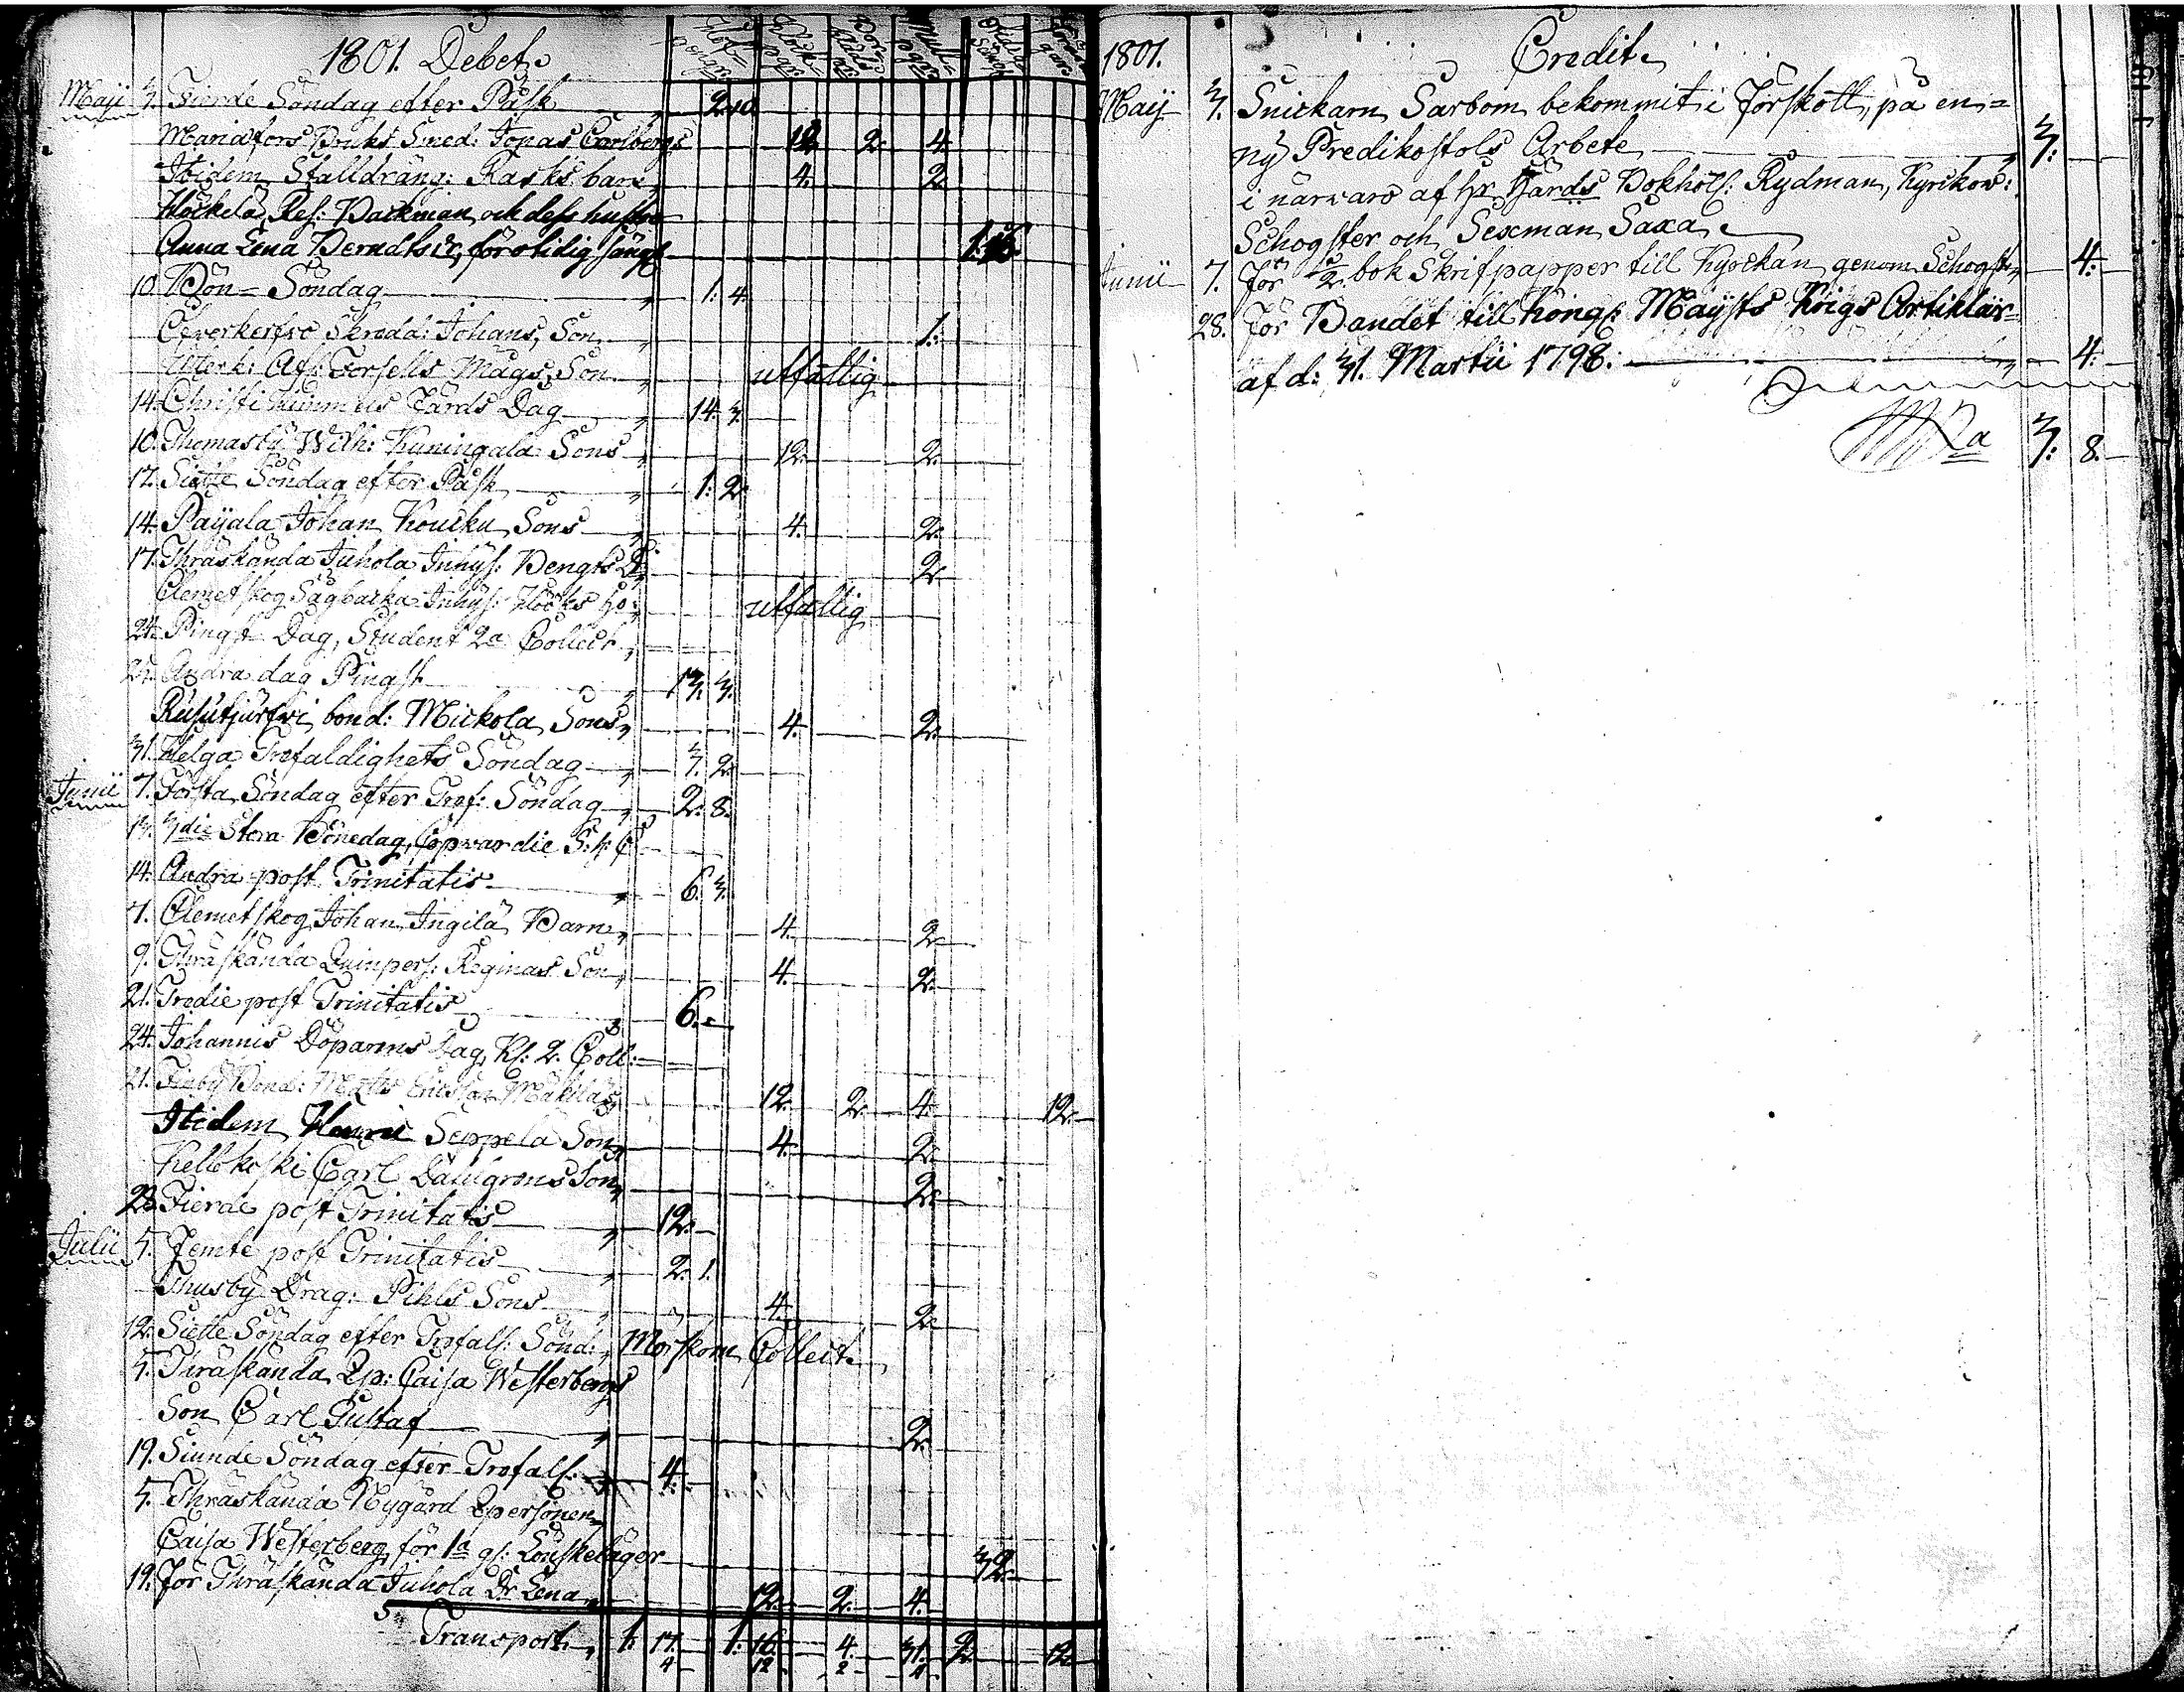 1801. Debet.
Håf-pengar Klock-pgr Mull-pgr
Maij 3. Fierde Söndag efter Påsk 2. 10
Mariæfors Bruks Smed: Jonas Carlbergs 12. 2. 4.
Ibidem Stalldräng: Rasks barn 4. 2.
Res: Backman och dess hustru
Anna Lena Berndtsdr, för otidig sängl. 1: 16
10. Bön-Söndag 1: 4.
Skredd: Johans Son 1.
Torsells Mågs Son utfattig
14. Christi himmels Färds Dag 14. 3.
10. Thomasby Wilh: Kuningala Sons 12. 2.
17. Siette Söndag efter Påsk 1: 2.
14. Paijala Johan Koucku Sons 4. 2.
17. Thräskända Juhola Inhys: Bengts D. 2.
Clemetskog Sågbacka Inhys: Hööks utfattig
24. Pingst Dag, Student 2a Collect
25. Andra dag Pingst 13. 3.
Rusutjärfvi bond: Mickola Sons 4. 2.
31. Helga Trefaldighets Söndag 3. 2.
Junii 7. Första Söndag efter Tref: Söndag 2. 8.
13. 3die Stora Bönedag,
14. Andra post Trinitatis 6. 3.
7. Clemetskog Johan Ingilä Barn 4. 2.
9. Thräskända Quinpers: Reginas Son 4. 2.
21. Tredie post Trinitatis 6. -
24. Johannis Döparens dag, Kl: 2. Coll:
21. Finby Bond: Matts Ericsson Mäkiläs 12. 2. 4. 12.
Ibidem Henric Seppelä Son 4. 2.
Kellokoski Carl Dahlgrens Son 2.
28. Fierde post Trinitatis 12. -
Julii 5. Femte post Trinitatis 2. 1.
Thusby Drag: Pihls Sons 4. 2.
12. Siette Söndag efter Trefall: Sönd: Morskom Collect.
5. Träskända Qp: Caisa Westerbergs
Son Carl Gustaf 2.
19. Siunde Söndag efter Trefall: 4. -
5. Thräskända Nygård Qpersonen
Caisa Westerberg för 1a gl: Lönskeläger 32.
19. För Thräskända Juhola Dr Lena 12. 2. 4.
Transport 1. 17. 1. 16. 4. 31. 2. 12
4 12 2 4
1801. Credit.
Maij 3. Snickarn Sarbom bekommit i Förskott, på en
ny Predikostols Arbete 3: -
i närvaro af Hr Härds Bokhol: Rydman, Kyrckow:
Schogster och Sexman Saxa
Junii 7. För ½ bok Skrifpapper till Kyrckan genom Schogst: 4. -
28. För Bandet till Kongl: Maijsts Krigs Artiklar
af d: 31. Martii 1798: 4. -
3: 8. -